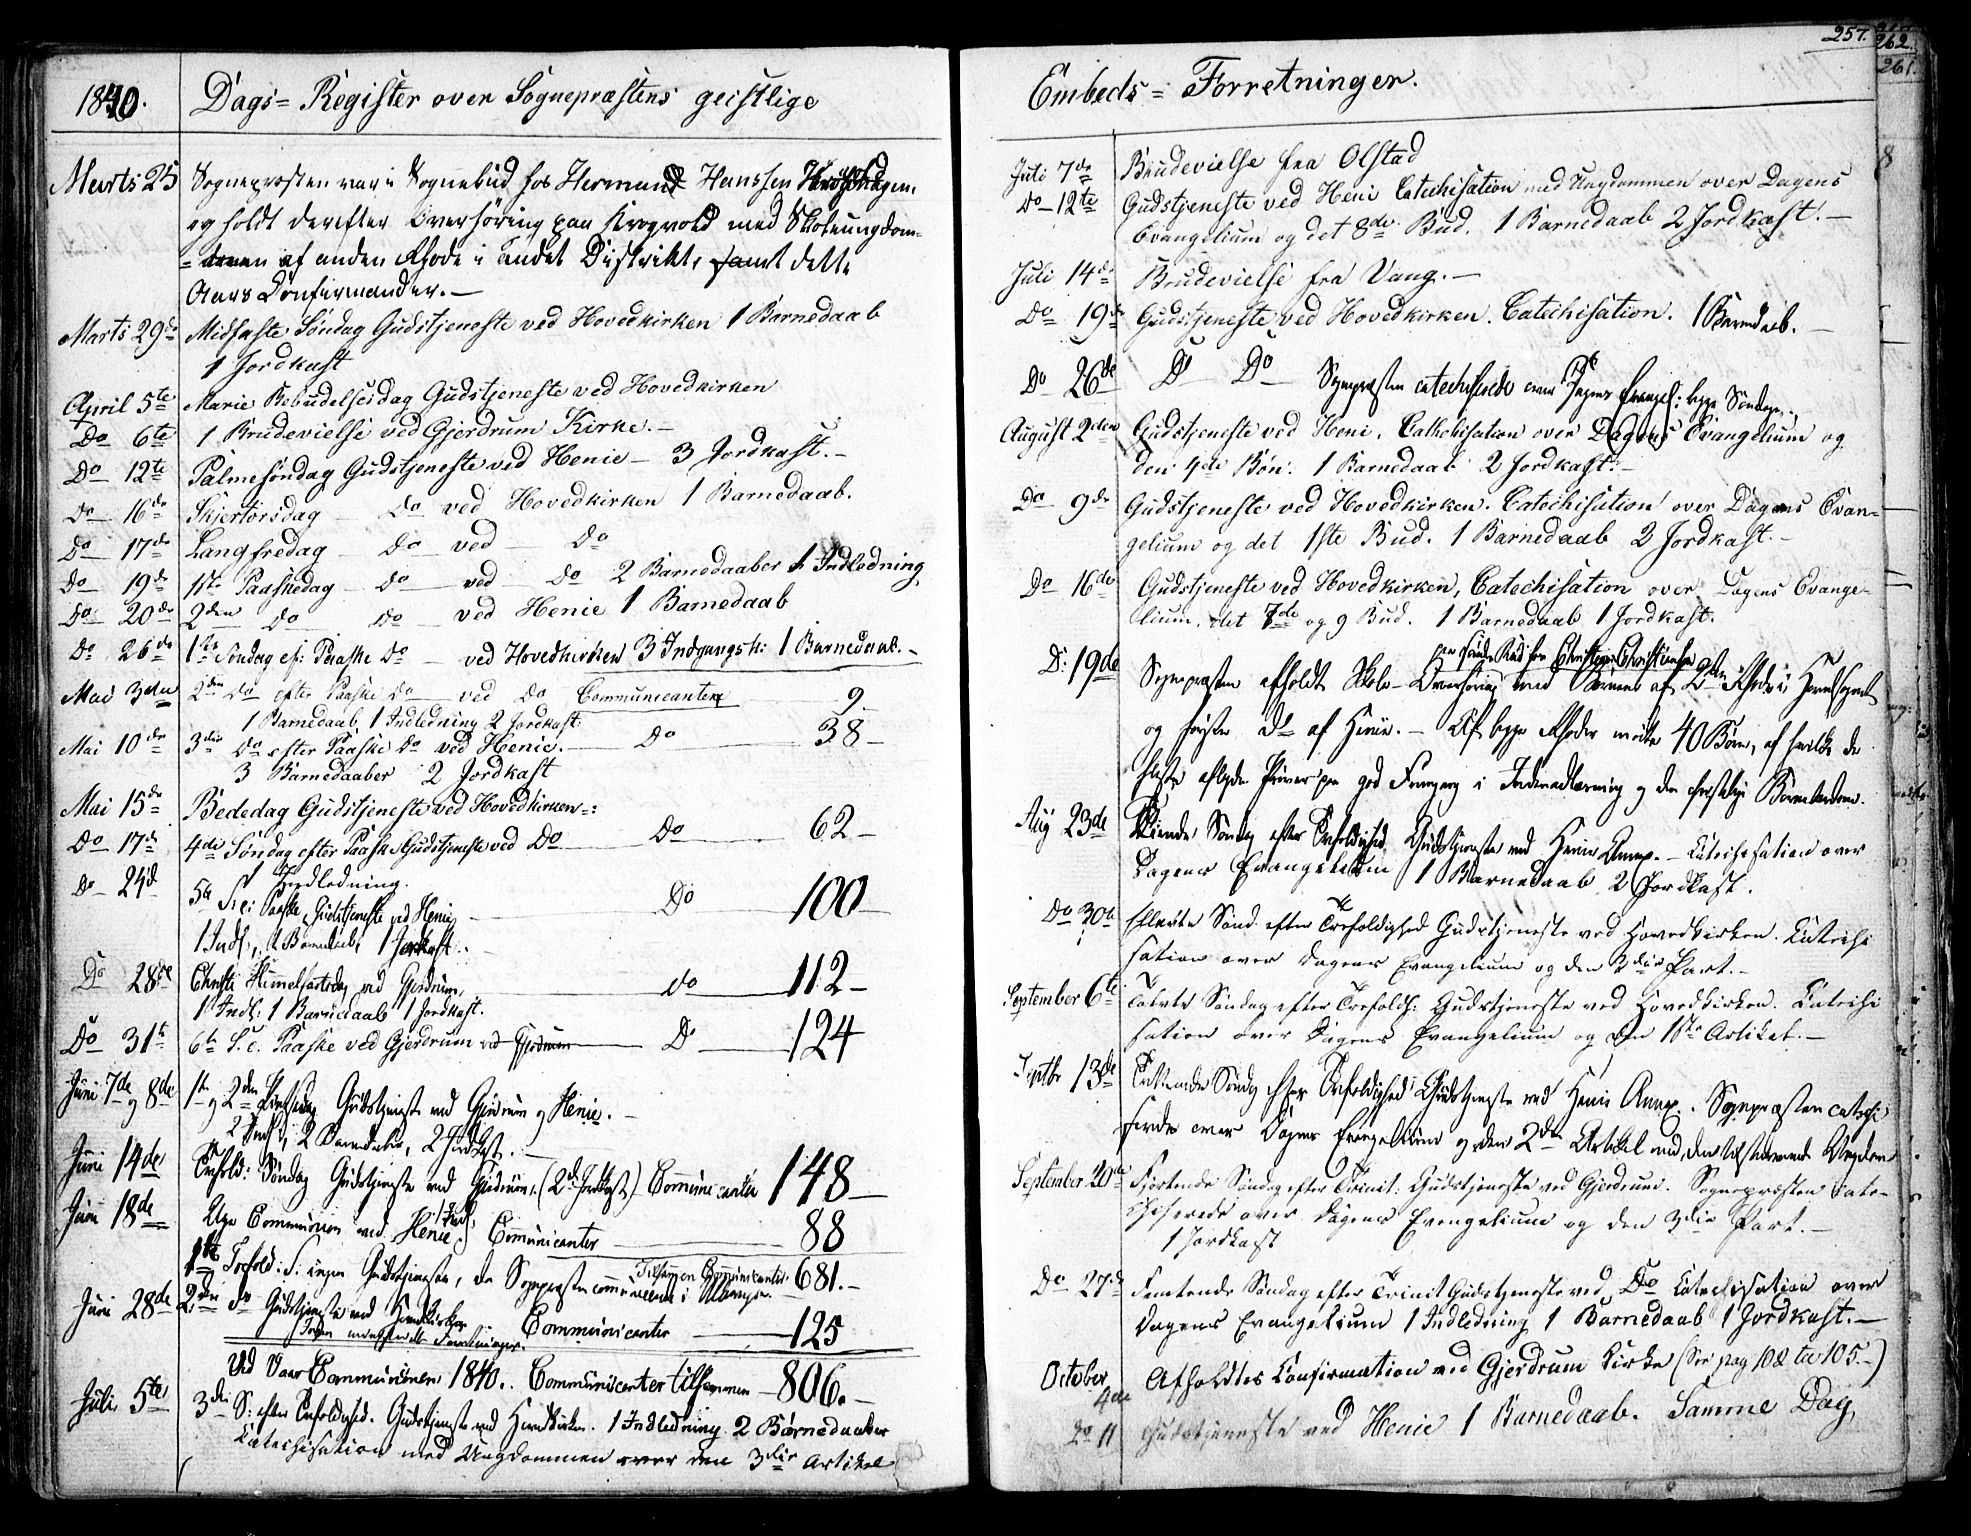 1840.
Dags= Register over Sognepræstens geistlige
Marts 25
Sognepræsten var i Sognebud hos Herman Hanssen
og holdt derefter Overhöring paa Krogvold med Skoleungdom-
af anden Rhode i andet Distrikt, samt dette
Aars Confirmander. —
Marts 29de
Midfaste Söndag Gudstjeneste ved Hovedkirken 1 Barnedaab
1 Jordkast
April 5te
Marie Bebudelsesdag Gudstjeneste ved Hovedkirken
Do 6te
1 Brudevielse ved Gjerdrum Kirke. —
Do 12te
Palmesöndag Gudstjeneste ved Henie — 3 Jordkast. —
Do 16de
Skjertorsdag — Do ved Hovedkirken 1 Barnedaab.
Do 17de
Langfredag — Do — ved — Do
Do 19de
1ste Paaskedag — Do — ved — Do 2 Barnedaaber 1 Indledning
Do 20de
2den Do — Do — ved Henie 1 Barnedaab
Do 26de
1ste Söndag ef: Paaske Do — ved Hovedkirken 3 Indgangsk: 1 Barnedaab. —
Mai 3die
2den Do efter Paaske Do — ved Do Communicanter 9
1 Barnedaab, 1 Indledning 2 Jordkast
Mai 10de
3die Do efter Paaske Do ved Henie. — Do — 38 —
3 Barnedaaber 2 Jordkast
Mai 15de
Bededag Gudstjeneste ved Hovedkirken
Do 17de
4de Söndag efter Paaske Gudstjeneste ved Do — Do — 62 —
1 Indledning.
Do 24d
5te S. e: Paaske, Gudstjeneste ved Henie — Do — 100 —
1 Indl:, 1 Barnedaab, 1 Jordkast.
Do 28de
Christi Himmelfartsdag ved Gjerdrum, — do — 112 —
1 Indl: 1 Barnedaab 1 Jordkast.
Do 31te
6te S. e. Paaske ved Gjerdrum — Do — 124
Juni 7de og 8de
1ste og 2den Pintsedag Gudstjeneste ved Gjerdrum og Henie. —
2 Indl:, 2 Barnedaaber, 2 Jordkast. —
Juni 14de
Trefold: Söndag Gudstjeneste ved Gjerdrum. (2 Jordkast) Communicanter 148 —
Juni 18de
Communion ved Henie 1 Indl: Communicanter — 88
Tilsammen Communicanter 681. —
1ste Trefold: S: ingen Gudstjeneste, da Sognepræsten communicerede i
Juni 28de
2den Do Gudstjeneste ved Hovedkirken Communicanter — 125
Ved Vaar Communionen 1840. Communicanter tilsammen — 806. —
Juli 5te
3die S: efter Trefoldighed. Gudstjeneste ved Hovedkirken. 1 Indledning 2 Barnedaaber
Catechisation med Ungdommen over den 3die Artikel
257.
262.
261.
Embeds= Forretninger.
Juli 7de
Brudevielse fra Olstad
Do 12te
Gudstjeneste ved Heni Catechisation med Ungdommen over Dagens
Evangelium og det 8de Bud. 1 Barnedaab 2 Jordkast. —
Juli 14de
Brudevielse fra Vang. —
Do 19de
Gudstjeneste ved Hovedkirken. Catechisation. 1 Barnedaab. —
Do 26de
Do Do Sognepræsten catechiserede over Dagens Evangel:
August 2den
Gudstjeneste ved Heni. Catechisation over Dagens Evangelium og
den 4de Bön. 1 Barnedaab 2 Jordkast. —
Do 9de
Gudstjeneste ved Hovedkirken. Catechisation over Dagens Evan-
gelium og det 1ste Bud. 1 Barnedaab 2 Jordkast. —
Do 16de
Gudstjeneste ved Hovedkirken, Catechisation over Dagens Evange-
lium, det 7de og 9 Bud. 1 Barnedaab 1 Jordkast.
D: 19de
Sognepræsten afholdt Skole-Overhöring med Börnene af 2den Rhode i Hovedsognet
og förste Do af Henie. — Af begge Rhoder mödte 40 Börn, af hvilke de
fleste aflagde Pröver paa god Fremgang i Indenadlæsning og den christelige Börnelærdom.
Aug 23de
Tiende Söndag efter Trefoldighed Gudstjeneste ved Henie Annex. — Catechisation over
Dagens Evangelium 1 Barnedaab 2 Jordkast.
Do 30te
Ellevte Sönd. efter Trefoldighed Gudstjeneste ved Hovedkirken. Catechi
sation over Dagens Evangelium og den 3die Part. —
September 6te
Tolvte Söndag efter Trefoldh: Gudstjeneste ved Hovedkirken. Catechi
sation over Dagens Evangelium og den 1ste Artikel. —
Septbr 13de
Trettende Söndag efter Trefoldighed Gudstjeneste ved Henie Annex. Sognepræsten catechi-
serede over Dagens Evangelium og den 2den Artikel med den tilstedeværende Ungdom
September 20de
Fjortende Söndag efter Trinit: Gudstjeneste ved Gjerdrum. Sognepræsten cate-
chiserede over Dagens Evangelium og den 3die Part. —
1 Jordkast
Do 27de
Femtende Söndag efter Trinit Gudstjeneste ved Do Catechisation over
Dagens Evangelium 1 Indledning 1 Barnedaab 1 Jordkast. —
October 4de
Afholdtes Confirmation ved Gjerdrum Kirke (See pag 102 til 105 —)
Do 11
Gudstjeneste ved Henie 1 Barnedaab. Samme Dag